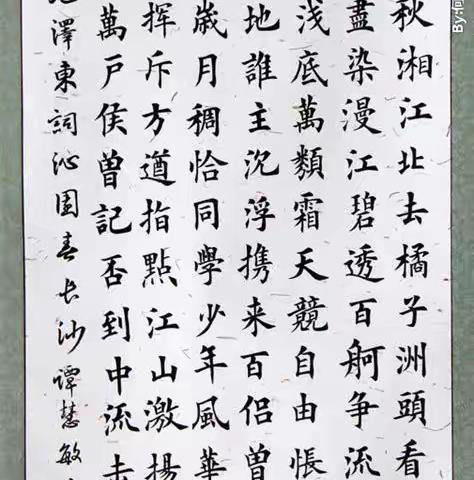 秋湘江北去橘子洲頭看
盡染漫江碧透百舸争流
浅底萬類霜天競自由悵
地誰主沉浮携来百侣曾
歲月稠恰同學少年風華
挥斥方遒指點江山激揚
萬户侯曾記否到中流击
澤東詞沁園春长沙譚慧敏
By: